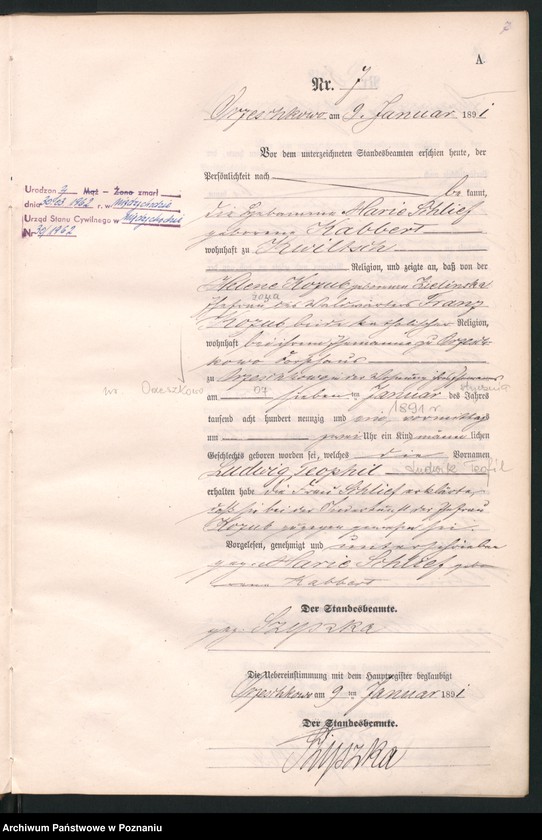 7
A
Nr. 7
Orzeschkowo am 9. Januar 1891
Vor dem unterzeichneten Standesbeamten erschien heute, der
Persönlichkeit nach
be kannt,
die Hebamme Marie Schlief
geborene Kabbert
wohnhaft zu Kwiltsch
Religion, und zeigte an, daß von der
Helene Kozub geborenen Zielinska
żona
Ehefrau des Waldwärters Franz
Kozub beide katholischer Religion,
wohnhaft bei ihrem Ehemanne zu Orzesch-
kowo Forsthaus
zu Orzeschkowo in der Wohnung ihres Ehemannes
am 07 sieben ten Januar stycznia des Jahres
1891 r
tausend acht hundert neunzig und ein, vormittags
um zwei Uhr ein Kind männ lichen
Geschlechts geboren worden sei, welches die Vornamen
Ludwig Teophil Ludwik Teofil
erhalten habe die Frau Schlief erklärte,
daß sie bei der Niederkunft der Ehefrau
Kozub zugegen gewesen sei.
Vorgelesen, genehmigt und unterschrieben
gez. Marie Schlief gebo-
rene Kabbert
Der Standesbeamte.
gez. Szyszka
Die Uebereinstimmung mit dem Hauptregister beglaubigt
Orzeschkowo am 9 ten Januar 1891
Der Standesbeamte.
Szyszka
Urodzon y Mąż – Żona zmarł
dnia 1962 r. w Międzychodzie
Urząd Stanu Cywilnego w Międzychodzie
Nr 39/1962
w Orzeszkowo
Archiwum Państwowe w Poznaniu